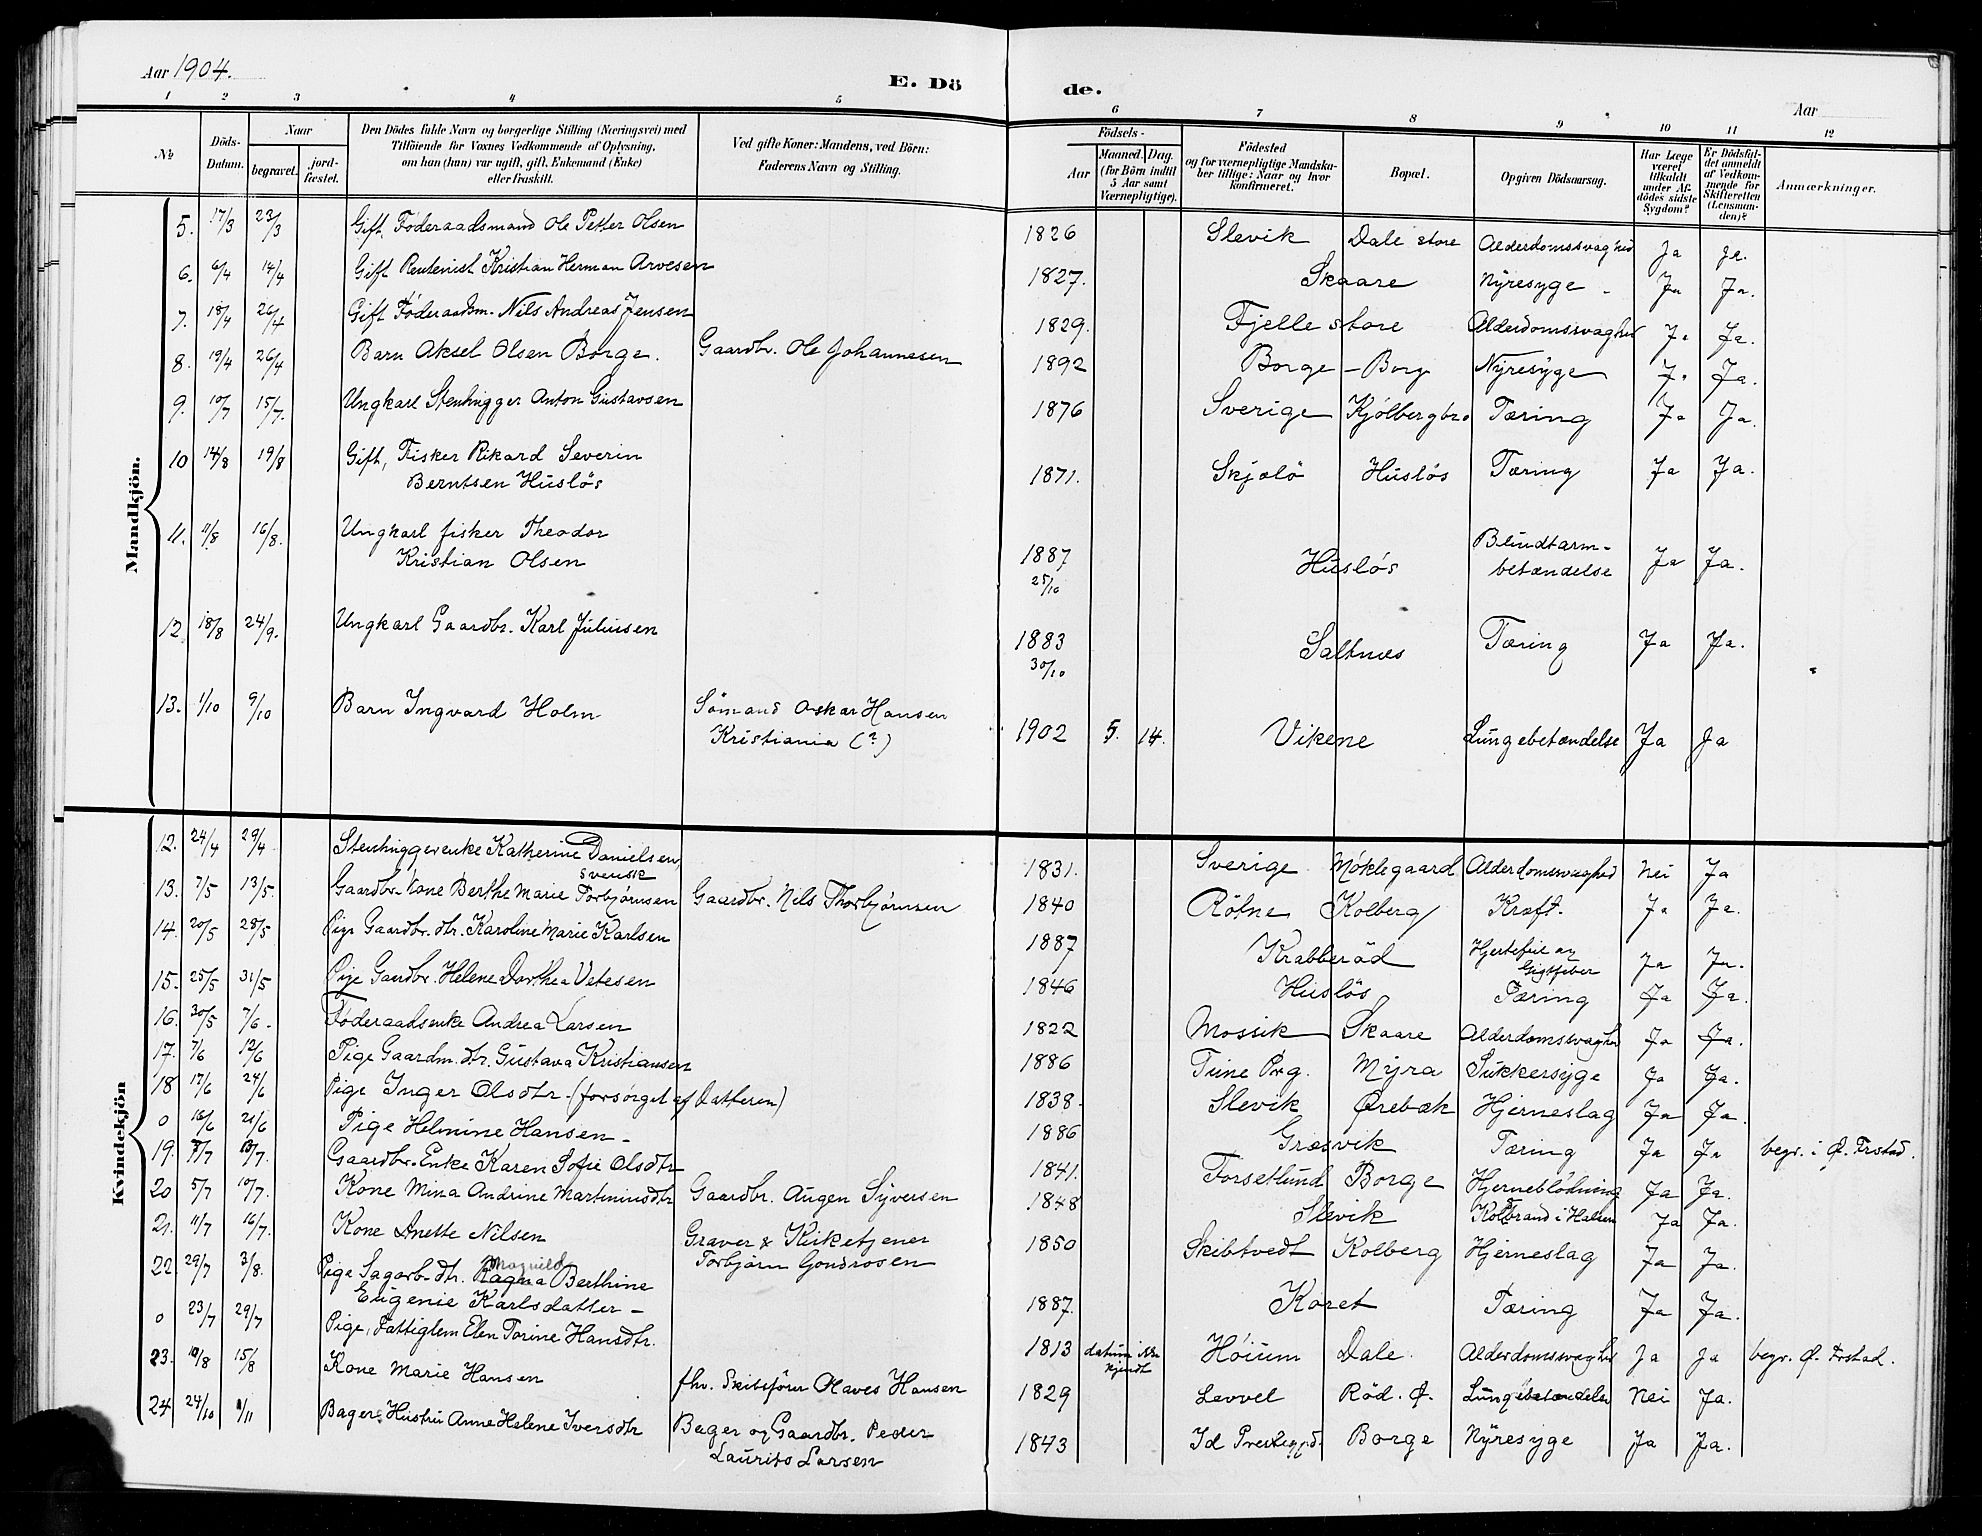 Aar 1904. E. Dö de. Aar
1 2 3 4 5 6 7 8 9 10 11 12
No Döds-Datum. Naar begravet. jord-fæstet. Den Dödes fulde Navn og borgerlige Stilling (Næringsvei) med Tilföiende for Voxnes Vedkommende af Oplysning, om han (hun) var ugift, gift, Enkemand (Enke) eller fraskilt. Ved gifte Koner: Mandens, ved Börn: Faderens Navn og Stilling. Födsels- Aar Maaned. Dag. (for Börn indtil 5 Aar samt Værnepligtige). Födested og for værnepligtige Mandskaber tillige: Naar og hvor konfirmeret. Bopæl. Opgiven Dödsaarsag. Har Læge været tilkaldt under Afdödes sidste Sygdom? Er Dödsfaldet anmeldt af Vedkommende for Skifteretten (Lensmanden)? Anmærkninger.
Mandkjön.
5. 17/3 23/3 Gift, Föderaadsmand Ole Petter Olsen 1826 Slevik Dale store Alderdomssvaghed Ja Ja.
6. 6/4 14/4 Gift Rentenist Kristian Herman Arvesen 1827. Skaare Nyresyge - Ja Ja.
7. 18/4 26/4 Gift Föderaadsm. Nils Andreas Jensen 1829. Fjelle store Alderdomssvaghed Ja Ja.
8. 19/4 26/4 Barn Aksel Olsen Borge. Gaardbr. Ole Johannesen 1892 Borge - Borg Nyresyge Ja Ja.
9. 10/7 15/7. Ungkarl Stenhugger Anton Gustavsen 1876 Sverige Kjölbergbro Tæring Ja Ja.
10 14/8 19/8 Gift, Fisker Rikard Severin
Berntsen Huslös 1871. Skjælö Huslös Tæring Ja Ja.
11. 11/8 16/8. Ungkarl fisker Theodor
Kristian Olsen 1887 25/10 Huslös Blindtarm-
betændelse Ja Ja.
12. 18/8 24/9. Ungkarl Gaardbr. Karl Juliusen 1883 30/10 Saltnes Tæring Ja Ja.
13. 1/10 9/10 Barn Ingvard Holm Sömand Oskar Hansen
Kristiania (?) 1902 5. 14. Vikene Lungebetændelse Ja Ja
Kvindekjön
12. 24/4 29/4 Stenhuggerenke Katherine Danielsen,
svensk 1831. Sverige Möklegaard Alderdomssvaghed Nei Ja
13. 7/5 13/5. Gaardbr. Kone Berthe Marie Torbjörnsen Gaardbr. Nils Thorbjörnsen 1840 Rötne Kolberg Kræft. Ja Ja.
14. 20/5 28/5 Pige Gaardbr. dtr. Karoline Marie Karlsen 1887 Krabberöd Hjertefeil og
Gigtfeber Ja Ja.
15. 25/5 31/5 Pige Gaardbr. Helene Dorthea Vetesen 1846 Huslös Tæring Ja Ja.
16. 30/5 7/6. Föderaadsenke Andrea Larsen 1822 Mossik Skaare Alderdomssvaghed Ja Ja.
17. 7/6 12/6 Pige Gaardm. dtr. Gustava Kristiansen 1886 Tune Prg. Myra Sukkersyge Ja Ja.
18 17/6 24/6 Pige Inger Olsdtr. (forsörget af Datteren) 1838. Slevik Örebæk Hjerneslag Ja Ja
0 16/6 21/6 Pige Helmine Hansen - 1886 Græsvik Tæring Ja Ja begr. i Ø. Frstad.
19. 7/7 13/7. Gaardbr. Enke Karen Sofie Olsdtr 1841. Forsetlund Borge Hjerneblödning Ja Ja.
20 5/7 10/7. Kone Mina Andrine Martiniusdtr Gaardbr. Augen Syversen 1848 Slevik Koldbrand i Halsen Ja Ja.
21. 11/7 16/7. Kone Anette Nilsen Graver & Kirketjener
Torbjörn Gondrosen 1850 Skibtvedt Kolberg Hjerneslag Ja Ja.
22 29/7 3/8. Pige Sagarb. dtr. Ragna Berthine
Eugenie Karlsdatter - 1887. Koret Tæring Ja Ja.
0 23/7 29/7 Pige, Fattiglem Elen Torine Hansdtr. 1813 datum ikke
kjendt Höium Dale. Alderdomssvaghed Ja Ja begr. Ø. Frstad.
23. 10/8 15/8 Kone Marie Hansen fhv. Skibsförer Olaves Hansen 1829 Levvel Röd. Ø. Lungebetændelse Nei Ja.
24 24/10 1/11 Bager Hustru Anne Helene Iversdtr Bager og Gaardbr. Peder
Laurits Larsen 1843 Id Prestegjd. Borge Nyresyge Ja Ja.